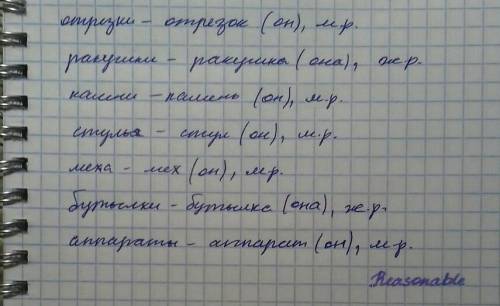 отрезки – отрезок (он), м.р.
ракушки – ракушка (она), ж.р.
камни – камень (он), м.р.
стулья – стул (он), м.р.
меха – мех (он), м.р.
бутылки – бутылка (она), ж.р.
аппараты – аппарат (он), м.р.
Reasonable